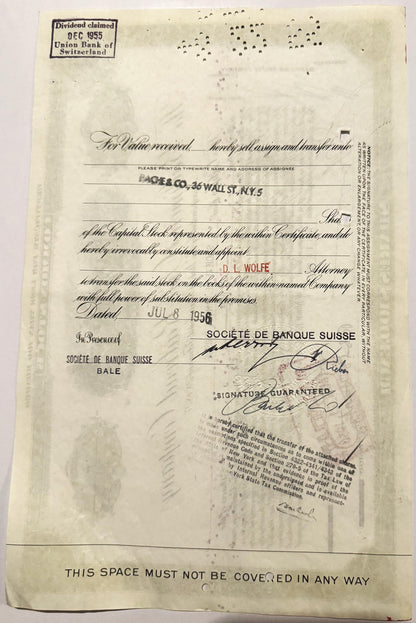 Dividend claimed
DEC 1955
Union Bank of
Switzerland
For Value received hereby sell, assign and transfer unto
PLEASE PRINT OR TYPEWRITE NAME AND ADDRESS OF ASSIGNEE
BACHE & CO., 36 WALL ST., N.Y. 5
Sha
of the Capital Stock represented by the within Certificate, and do
hereby irrevocably constitute and appoint
D. L. WOLFE Attorney
to transfer the said stock on the books of the within named Company
with full power of substitution in the premises.
Dated JUL 6 1956
In Presence of
SOCIÉTÉ DE BANQUE SUISSE
SOCIÉTÉ DE BANQUE SUISSE
BALE
SIGNATURE GUARANTEED
It is hereby certified that the transfer of the attached shares
was made under such circumstances as to come within one of
the exemptions specified in Section 4322-4341/4342 of the
Internal Revenue Code and Section 270-5 of the Tax Law of
State of New York and that evidence in proof of the
maintained by the undersigned and is available
by Internal Revenue officers and represent-
York State Tax Commission.
NOTICE: THE SIGNATURE TO THIS ASSIGNMENT MUST CORRESPOND WITH THE NAME
AS WRITTEN UPON THE FACE OF THE CERTIFICATE, IN EVERY PARTICULAR, WITHOUT
ALTERATION OR ENLARGEMENT, OR ANY CHANGE WHATEVER.
THIS SPACE MUST NOT BE COVERED IN ANY WAY